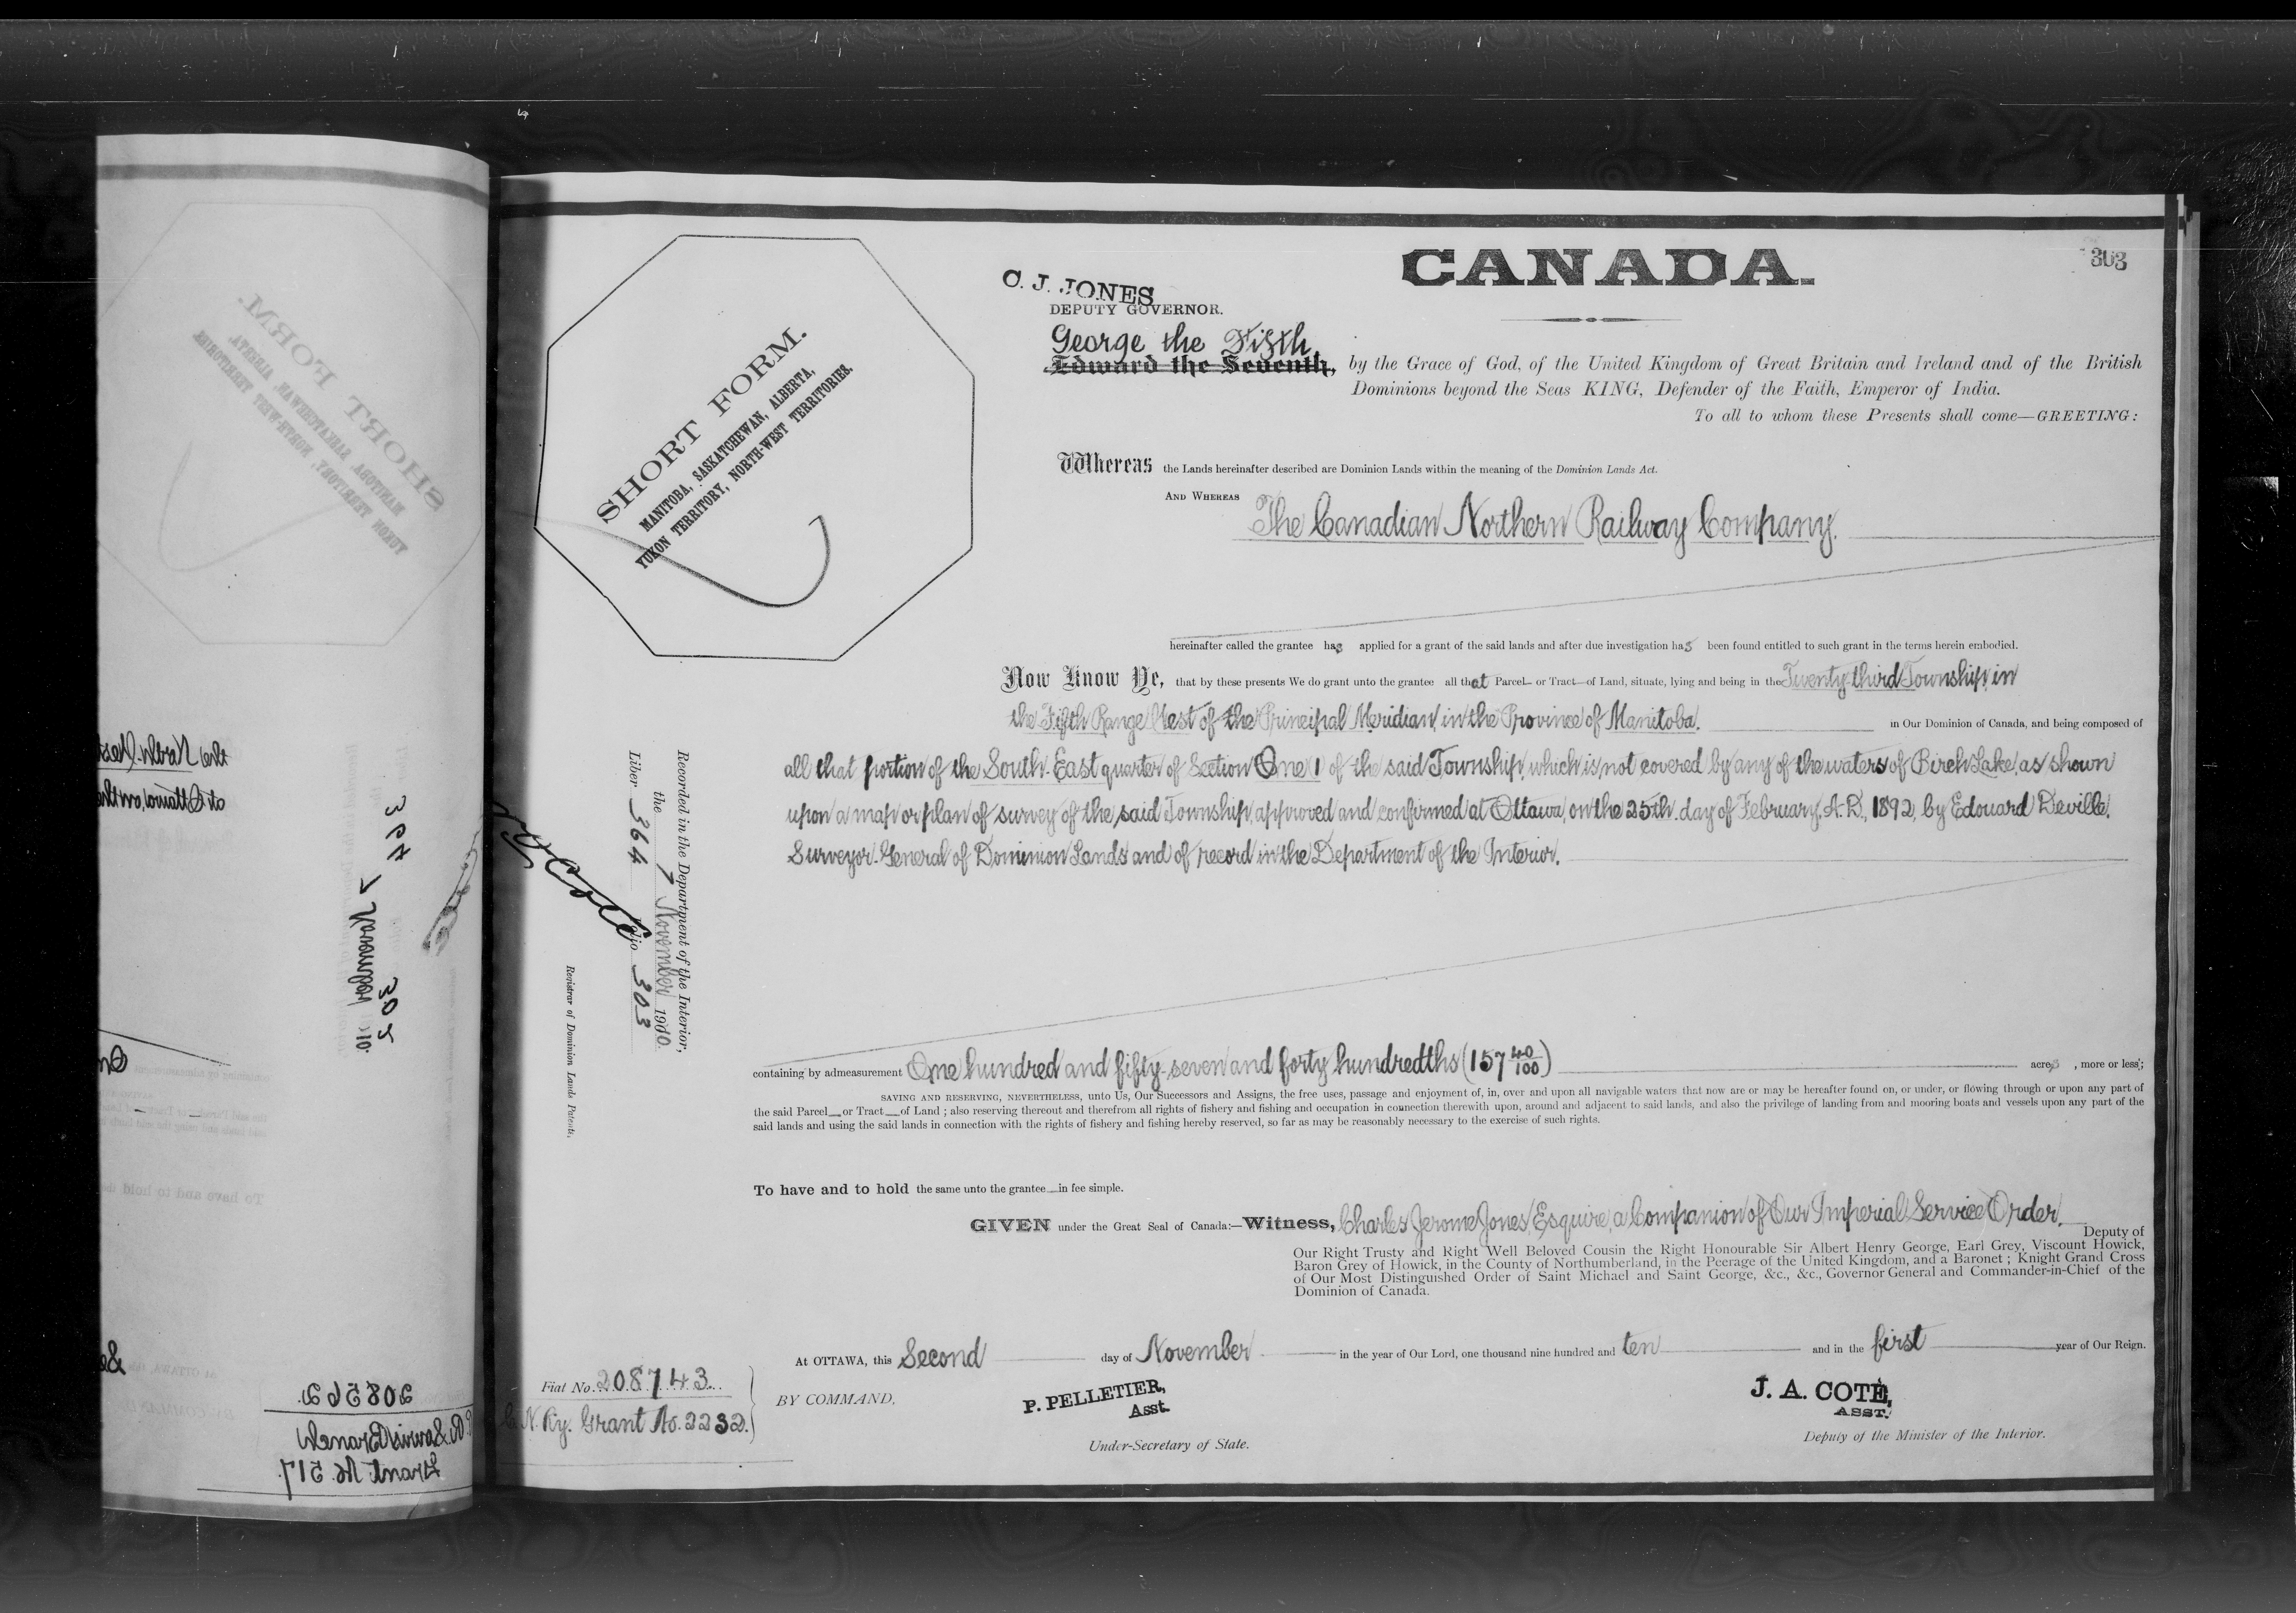 CANADA.
303
C. J. JONES
DEPUTY GOVERNOR.
George the Fifth
Edward the Seventh, by the Grace of God, of the United Kingdom of Great Britain and Ireland and of the British
Dominions beyond the Seas KING, Defender of the Faith, Emperor of India.
To all to whom these Presents shall come—GREETING:
SHORT FORM.
MANITOBA, SASKATCHEWAN, ALBERTA,
YUKON TERRITORY, NORTH-WEST TERRITORIES.
Whereas the Lands hereinafter described are Dominion Lands within the meaning of the Dominion Lands Act.
AND WHEREAS The Canadian Northern Railway Company.
hereinafter called the grantee has applied for a grant of the said lands and after due investigation has been found entitled to such grant in the terms herein embodied.
Now Know Ye, that by these presents We do grant unto the grantee all that Parcel or Tract of Land, situate, lying and being in the Twenty third Township, in
the Fifth Range West of the Principal Meridian, in the Province of Manitoba. in Our Dominion of Canada, and being composed of
all that portion of the South-East quarter of Section One 1 of the said Township, which is not covered by any of the waters of Birch Lake, as shown
upon a map or plan of survey of the said Township, approved and confirmed at Ottawa, on the 25th day of February, A.D., 1892, by Edouard Deville,
Surveyor-General of Dominion Lands and of record in the Department of the Interior.
Recorded in the Department of the Interior,
the 7 November 1910.
Liber 364 Folio 303
Registrar of Dominion Lands Patents.
containing by admeasurement One hundred and fifty-seven and forty hundredths (157 40/100) acres, more or less;
SAVING AND RESERVING, NEVERTHELESS, unto Us, Our Successors and Assigns, the free uses, passage and enjoyment of, in, over and upon all navigable waters that now are or may be hereafter found on, or under, or flowing through or upon any part of
the said Parcel or Tract of Land; also reserving thereout and therefrom all rights of fishery and fishing and occupation in connection therewith upon, around and adjacent to said lands, and also the privilege of landing from and mooring boats and vessels upon any part of the
said lands and using the said lands in connection with the rights of fishery and fishing hereby reserved, so far as may be reasonably necessary to the exercise of such rights.
To have and to hold the same unto the grantee in fee simple.
GIVEN under the Great Seal of Canada:—Witness, Charles Jerome Jones, Esquire, a Companion of Our Imperial Service Order,
Deputy of
Our Right Trusty and Right Well Beloved Cousin the Right Honourable Sir Albert Henry George, Earl Grey, Viscount Howick,
Baron Grey of Howick, in the County of Northumberland, in the Peerage of the United Kingdom, and a Baronet; Knight Grand Cross
of Our Most Distinguished Order of Saint Michael and Saint George, &c., &c., Governor General and Commander-in-Chief of the
Dominion of Canada.
At OTTAWA, this Second day of November in the year of Our Lord, one thousand nine hundred and ten and in the first year of Our Reign.
Fiat No. 208743
C. N. Ry. Grant No. 2232.
BY COMMAND,
P. PELLETIER,
Asst.
Under-Secretary of State.
J. A. COTÉ,
ASST.
Deputy of the Minister of the Interior.